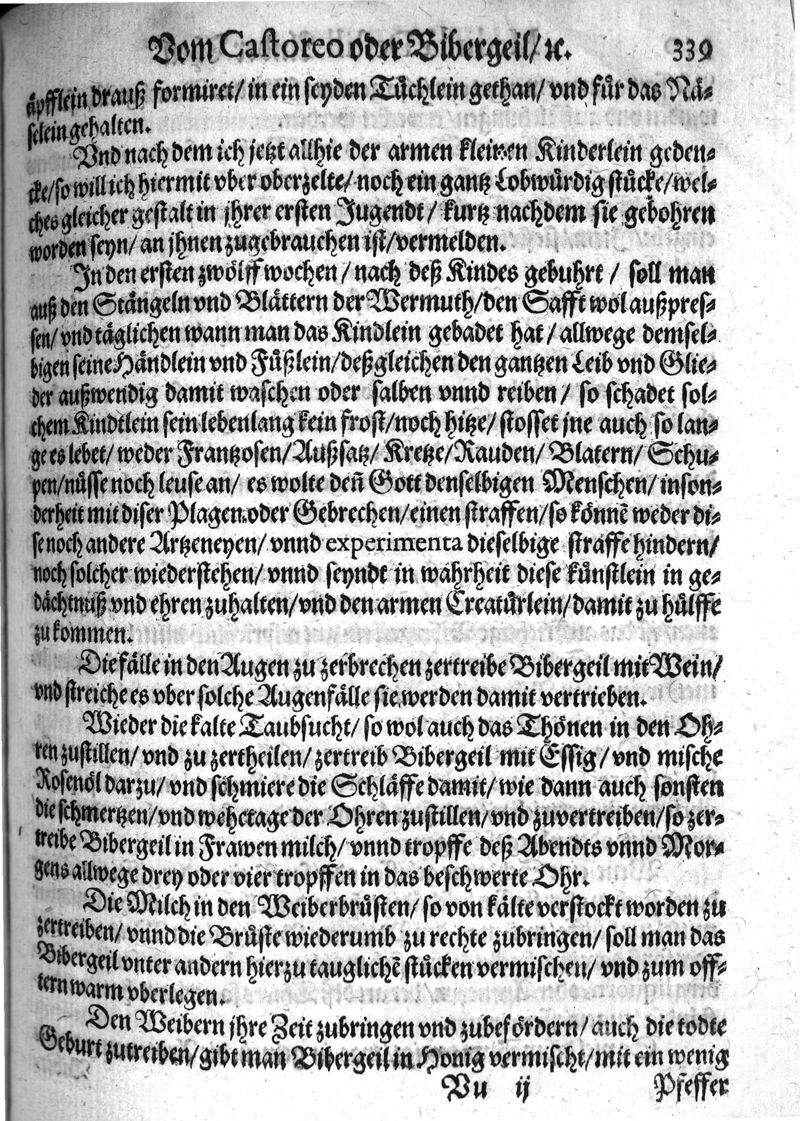 Vom Castoreo oder Bibergeil/ ꝛc. 339
äpfflein drauß formiret/ in ein seyden Tüchlein gethan/ vnd für das Nä-
selein gehalten.
Vnd nach dem ich jetzt allhie der armen kleinen Kinderlein geden-
cke/ so will ich hiermit vber oberzelte/ noch ein gantz Lobwürdig stücke/ wel-
ches gleicher gestalt in jhrer ersten Jugendt/ kurtz nachdem sie gebohren
worden seyn/ an jhnen zugebrauchen ist/ vermelden.
In den ersten zwölff wochen/ nach deß Kindes gebuhrt/ soll man
auß den Stängeln vnd Blättern der Wermuth/ den Safft wol außpres-
sen/ vnd täglichen wann man das Kindlein gebadet hat/ allwege demsel-
bigen seine Händlein vnd Füßlein/ deßgleichen den gantzen Leib vnd Glie-
der außwendig damit waschen oder salben vnnd reiben/ so schadet sol-
chem Kindtlein sein lebenlang kein frost/ noch hitze/ stosset jne auch so lan-
ge es lebet/ weder Frantzosen/ Außsatz/ Kretze/ Rauden/ Blatern/ Schu-
pen/ nüsse noch leuse an/ es wolte deñ Gott denselbigen Menschen/ inson-
derheit mit diser Plagen oder Gebrechen/ einen straffen/ so könnē weder di-
se noch andere Artzeneyen/ vnnd experimenta dieselbige straffe hindern/
noch solcher wiederstehen/ vnnd seyndt in wahrheit diese künstlein in ge-
dächtnuß vnd ehren zuhalten/ vnd den armen Creatürlein/ damit zu hülffe
zu kommen.
Die fälle in den Augen zu zerbrechen zertreibe Bibergeil mit Wein/
vnd streiche es vber solche Augenfälle sie werden damit vertrieben.
Wieder die kalte Taubsucht/ so wol auch das Thönen in den Oh-
ren zustillen/ vnd zu zertheilen/ zertreib Bibergeil mit Essig/ vnd mische
Rosenöl darzu/ vnd schmiere die Schläffe damit/ wie dann auch sonsten
die schmertzen/ vnd wehetage der Ohren zustillen/ vnd zuvertreiben/ so zer-
treibe Bibergeil in Frawen milch/ vnnd tropffe deß Abendts vnnd Mor-
gens allwege drey oder vier tropffen in das beschwerte Ohr.
Die Milch in den Weiberbrüsten/ so von kälte verstockt worden zu
zertreiben/ vnnd die Brüste wiederumb zu rechte zubringen/ soll man das
Bibergeil vnter andern hierzu tauglichē stücken vermischen/ vnd zum off-
tern warm vberlegen.
Den Weibern jhre Zeit zubringen vnd zubefördern/ auch die todte
Geburt zutreiben/ gibt man Bibergeil in Honig vermischt/ mit ein wenig
Vu ij Pfeffer